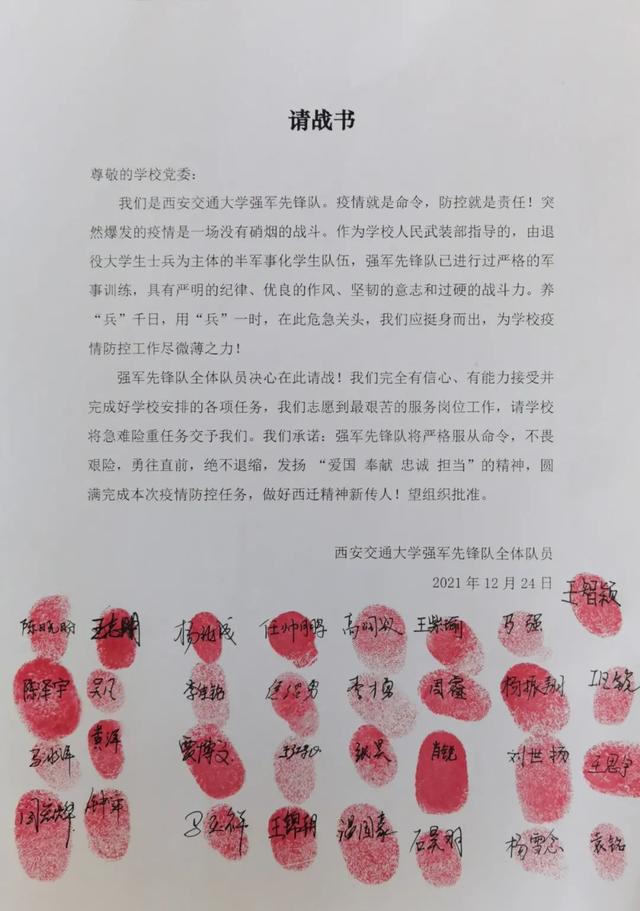 请战书
尊敬的学校党委：
我们是西安交通大学强军先锋队。疫情就是命令，防控就是责任！突
然爆发的疫情是一场没有硝烟的战斗。作为学校人民武装部指导的，由退
役大学生士兵为主体的半军事化学生队伍，强军先锋队已进行过严格的军
事训练，具有严明的纪律、优良的作风、坚韧的意志和过硬的战斗力。养
“兵”千日，用“兵”一时，在此危急关头，我们应挺身而出，为学校疫
情防控工作尽微薄之力！
强军先锋队全体队员决心在此请战！我们完全有信心、有能力接受并
完成好学校安排的各项任务，我们志愿到最艰苦的服务岗位工作，请学校
将急难险重任务交予我们。我们承诺：强军先锋队将严格服从命令，不畏
艰险，勇往直前，绝不退缩，发扬 “爱国 奉献 忠诚 担当”的精神，圆
满完成本次疫情防控任务，做好西迁精神新传人！望组织批准。
西安交通大学强军先锋队全体队员
2021 年 12 月 24 日
王智颖
任帅鹏 王紫瑜 马强
陈泽宇 吴凡 李佳铭 李勇 周睿 杨振翔
黄洋 贾博文 张昊 肖锐 刘世扬 王思宇
王锦朝 温国豪 石昊羽 杨雪念 袁铭